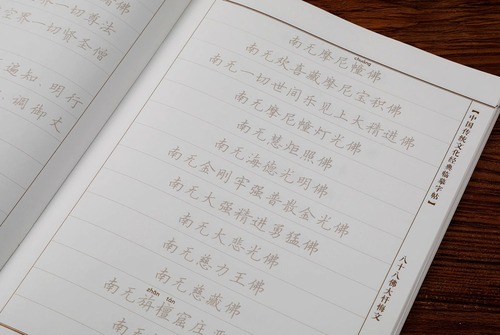 界一切尊法
空界一切贤圣僧
遍知、明行
调御丈
chuáng
南无摩尼幢佛
南无欢喜藏摩尼宝积佛
南无一切世间乐见上大精进佛
南无摩尼幢灯光佛
南无慧炬照佛
南无海德光明佛
南无金刚牢强普散金光佛
南无大强精进勇猛佛
南无大悲光佛
南无慈力王佛
南无慈藏佛
zhān tán
南无旃檀窟庄严
【中国传统文化经典临摹字帖】
八十八佛大忏悔文